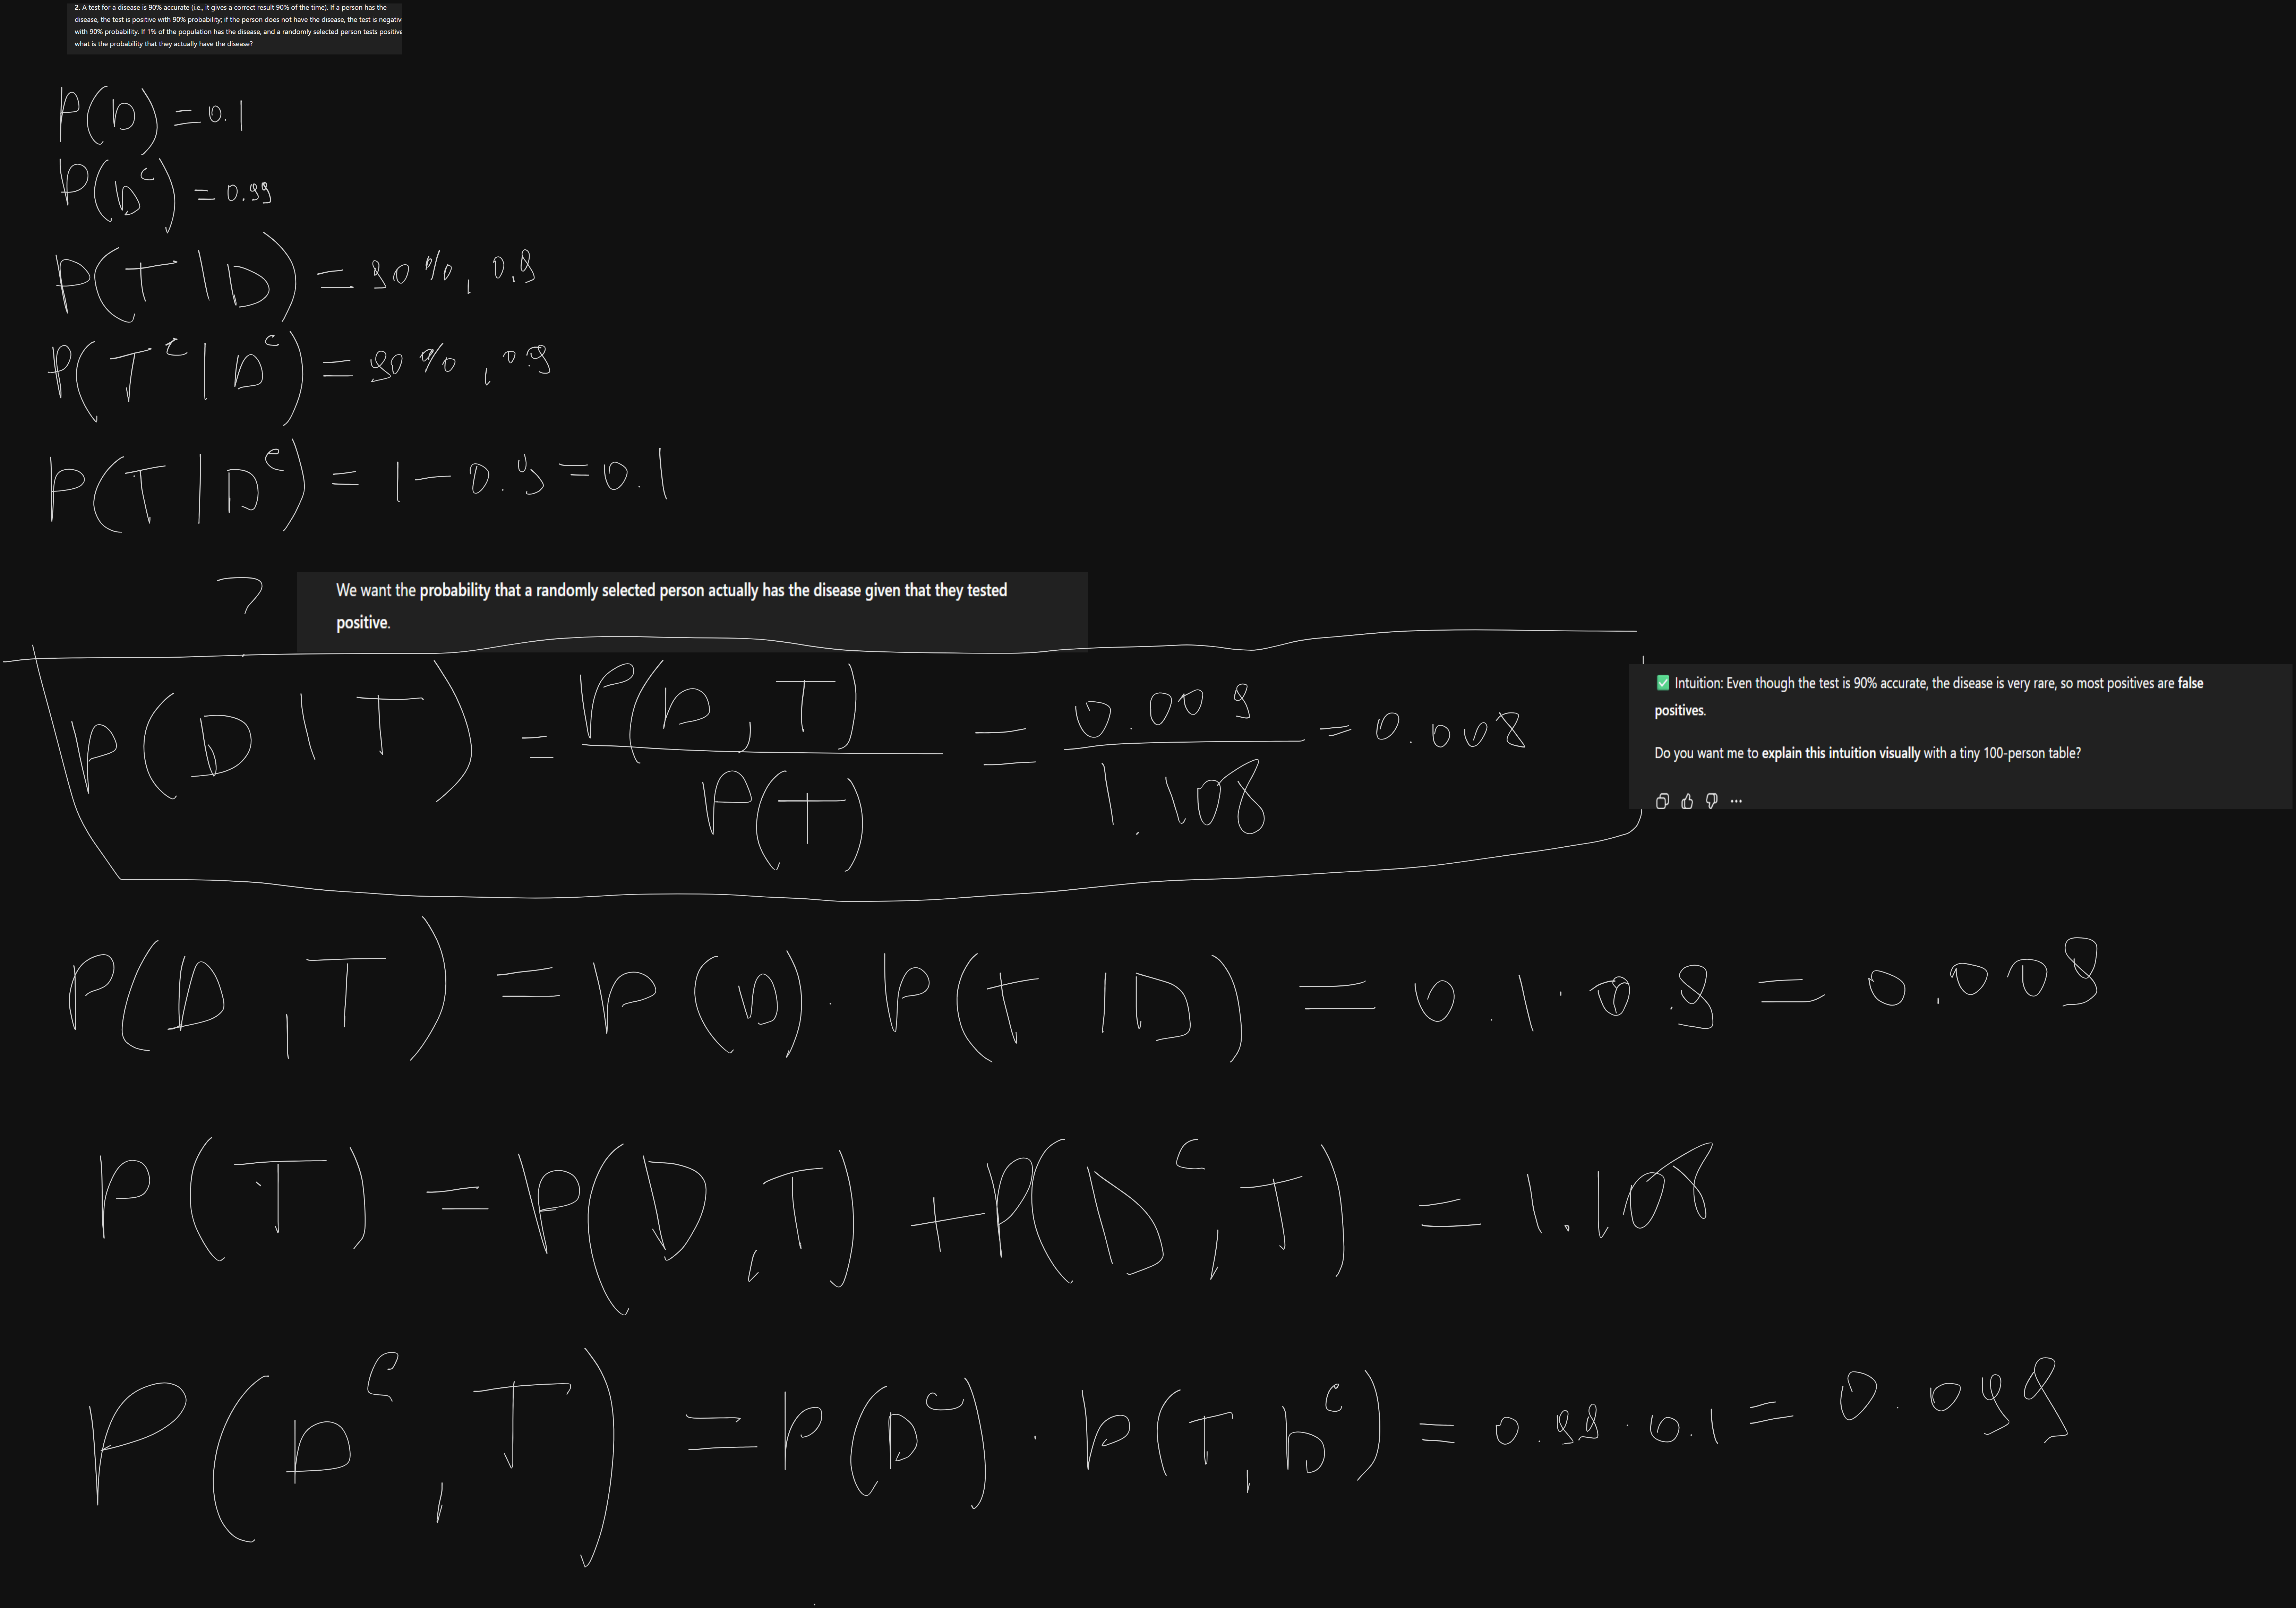 2. A test for a disease is 90% accurate (i.e., it gives a correct result 90% of the time). If a person has the
disease, the test is positive with 90% probability; if the person does not have the disease, the test is negativ
with 90% probability. If 1% of the population has the disease, and a randomly selected person tests positive
what is the probability that they actually have the disease?
P(D) = 0.1
P(D^c) = 0.99
P(T | D) = 90%, 0.9
P(T^c | D^c) = 90%, 0.9
P(T | D^c) = 1 - 0.9 = 0.1
?
We want the probability that a randomly selected person actually has the disease given that they tested
positive.
P(D | T) = P(D, T) / P(T) = 0.009 / 1.108 = 0.008
✅ Intuition: Even though the test is 90% accurate, the disease is very rare, so most positives are false
positives.
Do you want me to explain this intuition visually with a tiny 100-person table?
P(D, T) = P(D) · P(T | D) = 0.1 · 0.9 = 0.009
P(T) = P(D, T) + P(D^c, T) = 1.108
P(D^c, T) = P(D^c) · P(T, D^c) = 0.99 · 0.1 = 0.099